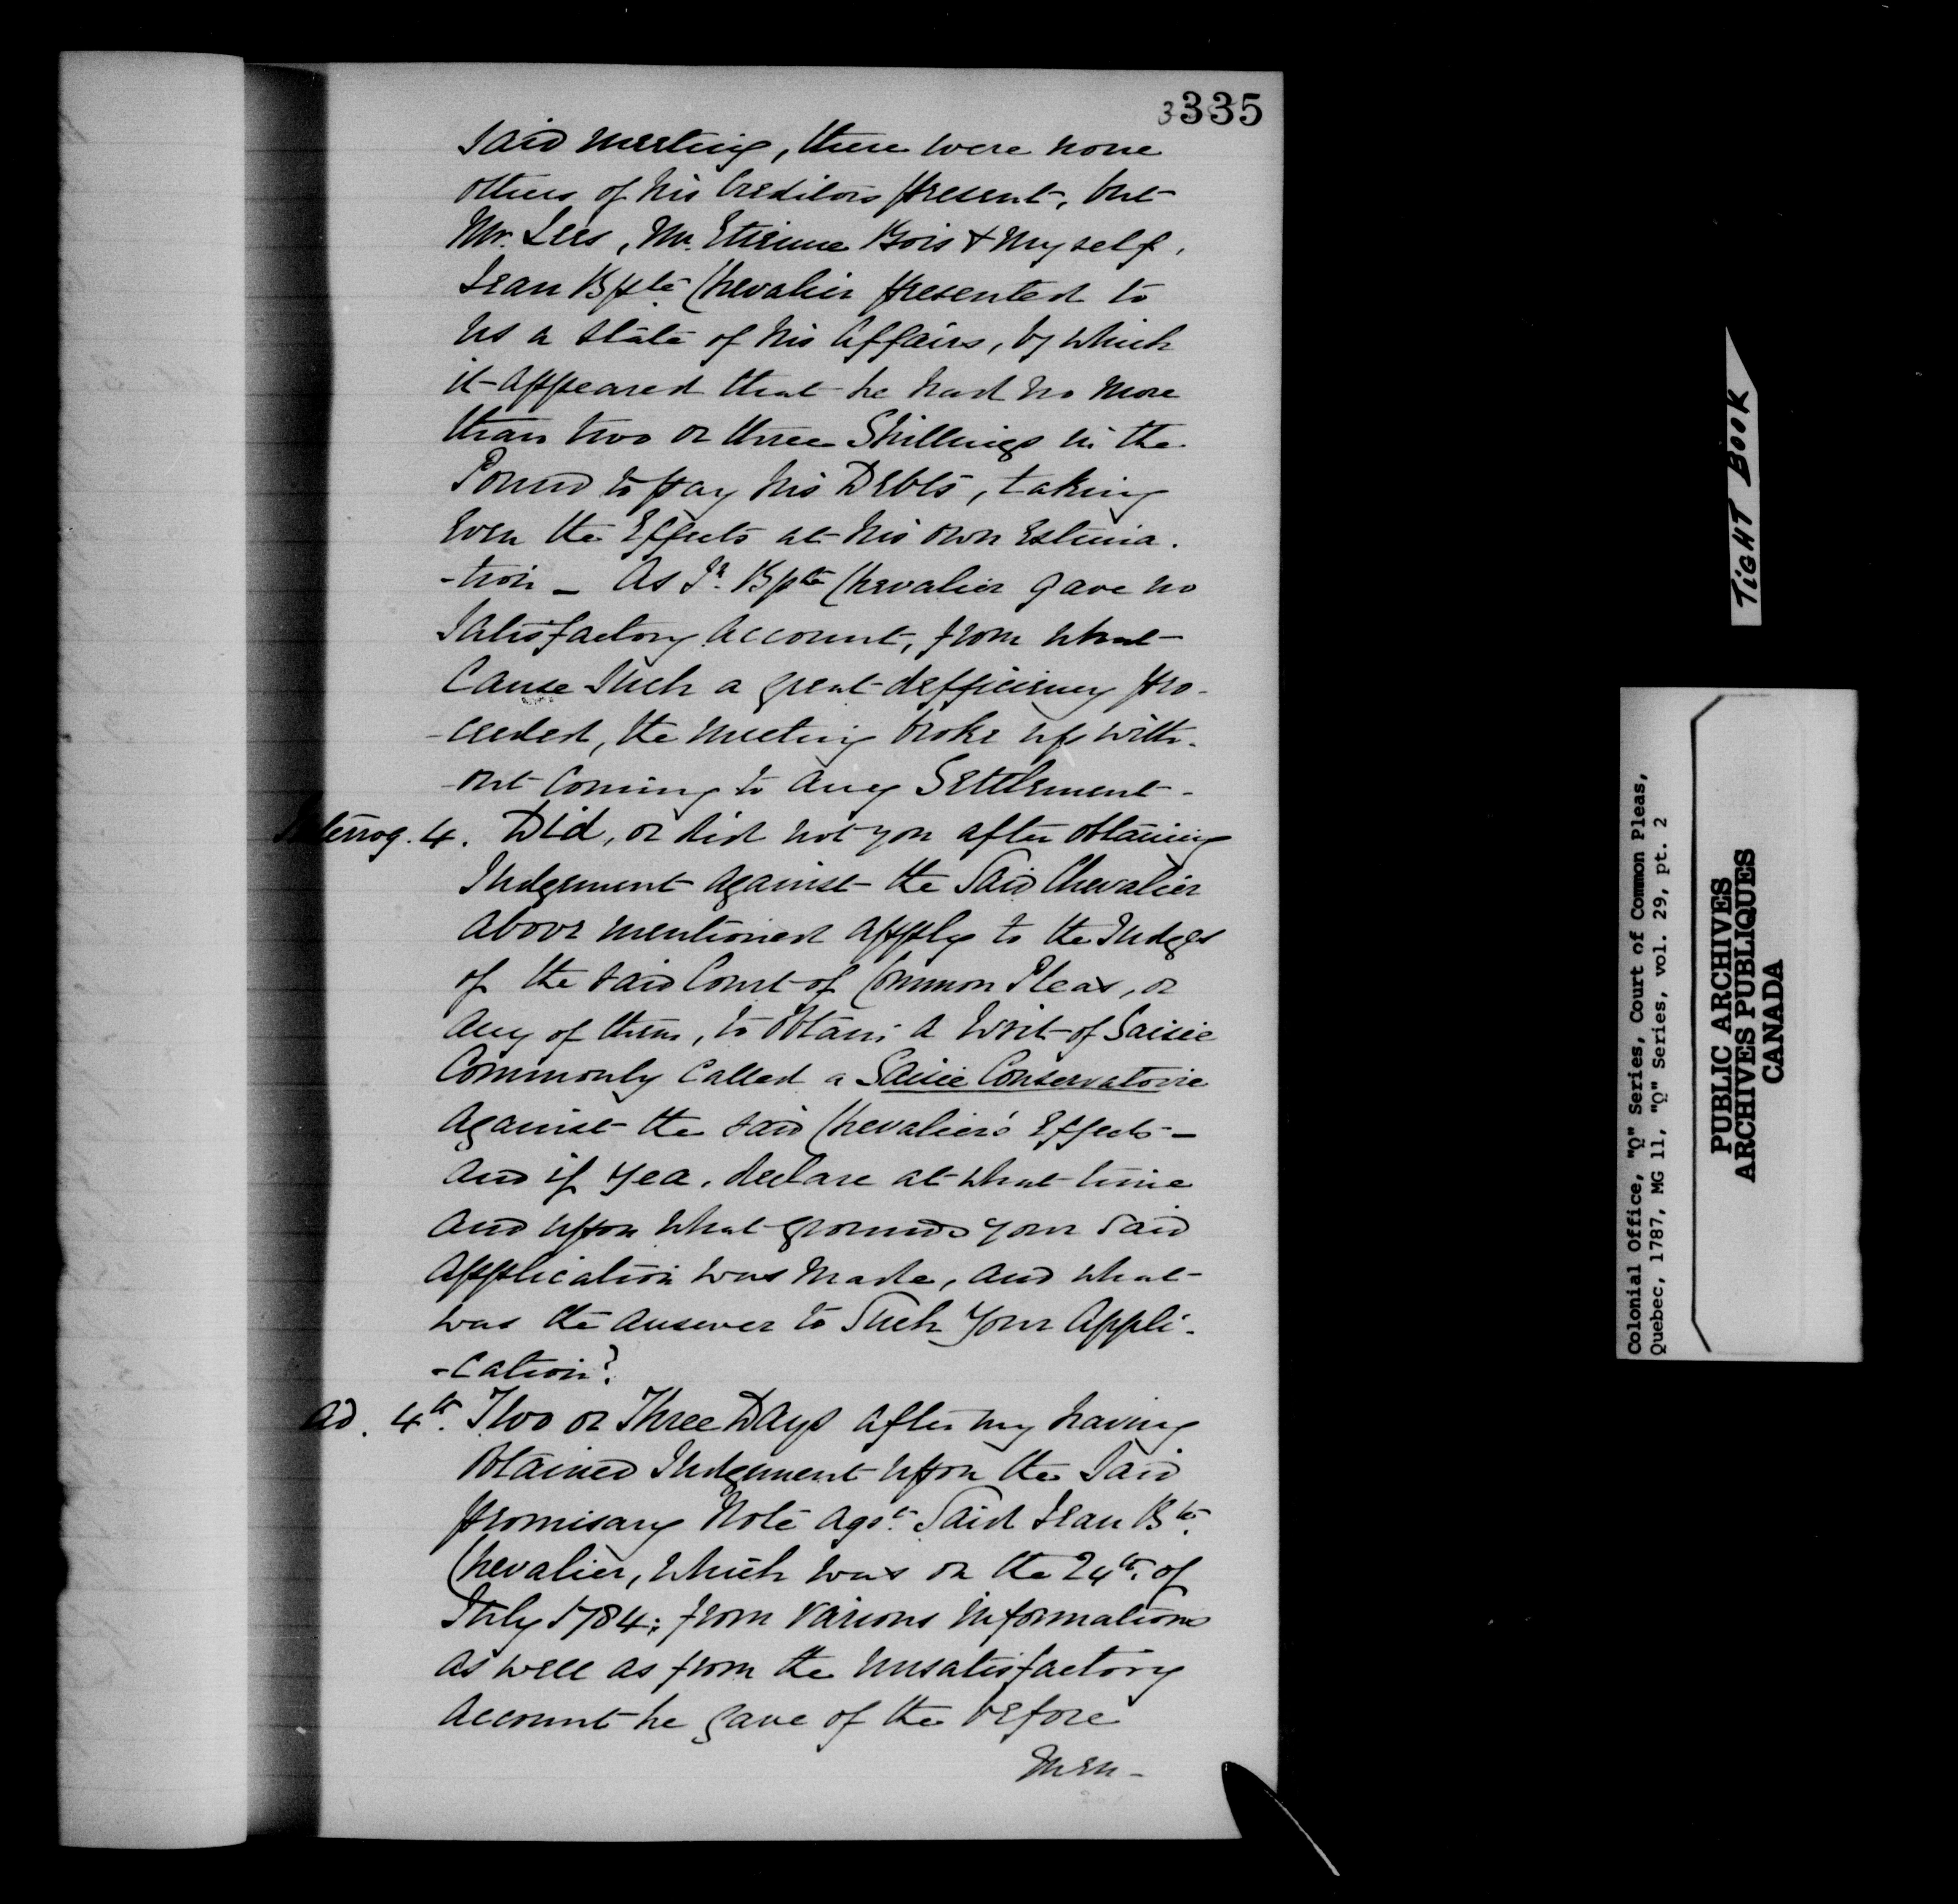 3335
said meeting, there were none
others of his Creditors present, but
Mr. Lees, Mr. Etienne Bois & Myself,
Jean Bpte Chevalier presented to
us a state of his Affairs, by which
it appeared that he had no more
than two or three Shillings in the
Pound to pay his Debts, taking
Even the Effects at his own Estima-
-tion _ As Jn. Bpte Chevalier gave no
Satisfactory Account, from what
Cause Such a great defficiency pro-
-ceeded, the Meeting broke up with-
-out Coming to any Settlement -
Interrog. 4. Did, or did not you after obtaining
Judgement against the Said Chevalier
above mentioned apply to the Judges
of the said Court of Common Pleas, or
any of them, to obtain a Writ of Saisie
Commonly Called a Saisie Conservatoire
against the said Chevalier's Effects -
and if yea, declare at what time
and upon what grounds your said
Application was Made, and what
was the answer to Such Your Appli-
-cation?
ad. 4th. Two or Three Days after my having
obtained Judgement upon the Said
promisary Note agst. Said Jean Bte.
Chevalier, which was on the 24th. of
July 1784; from various informations
as well as from the unsatisfactory
account he gave of the before
Men-
TIGHT BOOK
Colonial Office, "Q" Series, Court of Common Pleas,
Quebec, 1787, MG 11, "Q" Series, vol. 29, pt. 2
PUBLIC ARCHIVES
ARCHIVES PUBLIQUES
CANADA